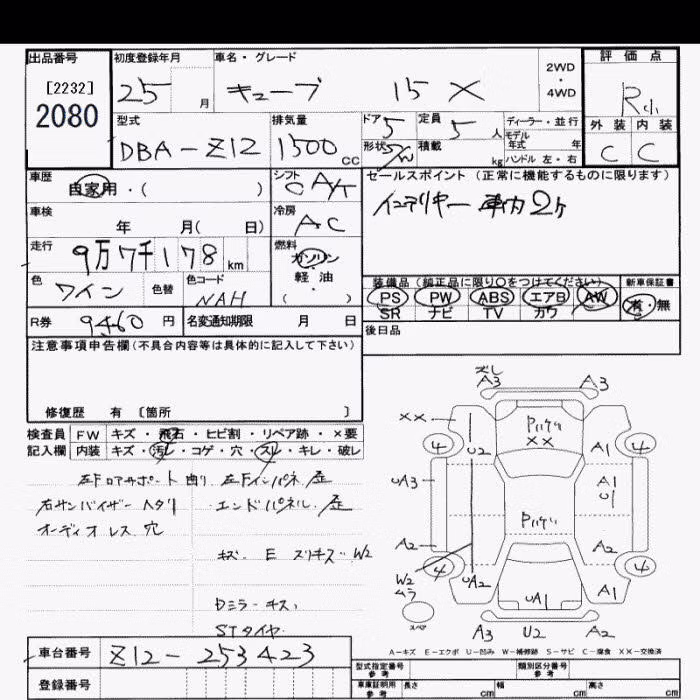 出品番号
[2232]
2080
初度登録年月
25 月
車名・グレード
キューブ 15 X
2WD
・
4WD
評価点
R
外装 内装
C C
型式
DBA-Z12
排気量
1500 CC
ドア 5
定員 5 人
形状 5/W
積載 kg
ディーラー・並行
モデル年式 年
ハンドル 左・右
車歴
自家用・( )
シフト
CA/T
セールスポイント(正常に機能するものに限ります)
インテリキー 車カワ2ケ
車検
年 月( 日)
冷房
AC
走行
9万7千178 km
燃料
ガソリン
軽油
・
( )
色 ワイン
色替
色コード
NAH
装備品(純正品に限り○をつけてください)
PS PW ABS エアB AW
SR ナビ TV カワ
新車保証書
有・無
R券 9460 円
名変通知期限 月 日
後日品
注意事項申告欄(不具合内容等は具体的に記入して下さい)
修復歴 有 [箇所 ]
検査員記入欄
FW キズ・飛石・ヒビ割・リペア跡・×要
内装 キズ・汚レ・コゲ・穴・スレ・キレ・破レ
左Fロアサポート曲り 左Fインパネ歪
右サンバイザーヘタリ エンドパネル歪
オーディオレス穴
キズ E スリキズ W2
Dミラーキズ
STタイヤ
ズレ
A3 A3
XX
4 U2 Pハゲ XX A1 4
UA3 A1 U1
Pハゲ
A2 A2
4 4
W2 ムラ UA2 UA1 A1
スペア
A3 U2 A2
A-キズ E-エクボ U-凹み W-補修跡 S-サビ C-腐食 XX-交換済
車台番号 Z12-253423
登録番号
型式指定番号 参考
類別区分番号 参考
車庫証明用 参考 長さ cm 幅 cm 高さ cm